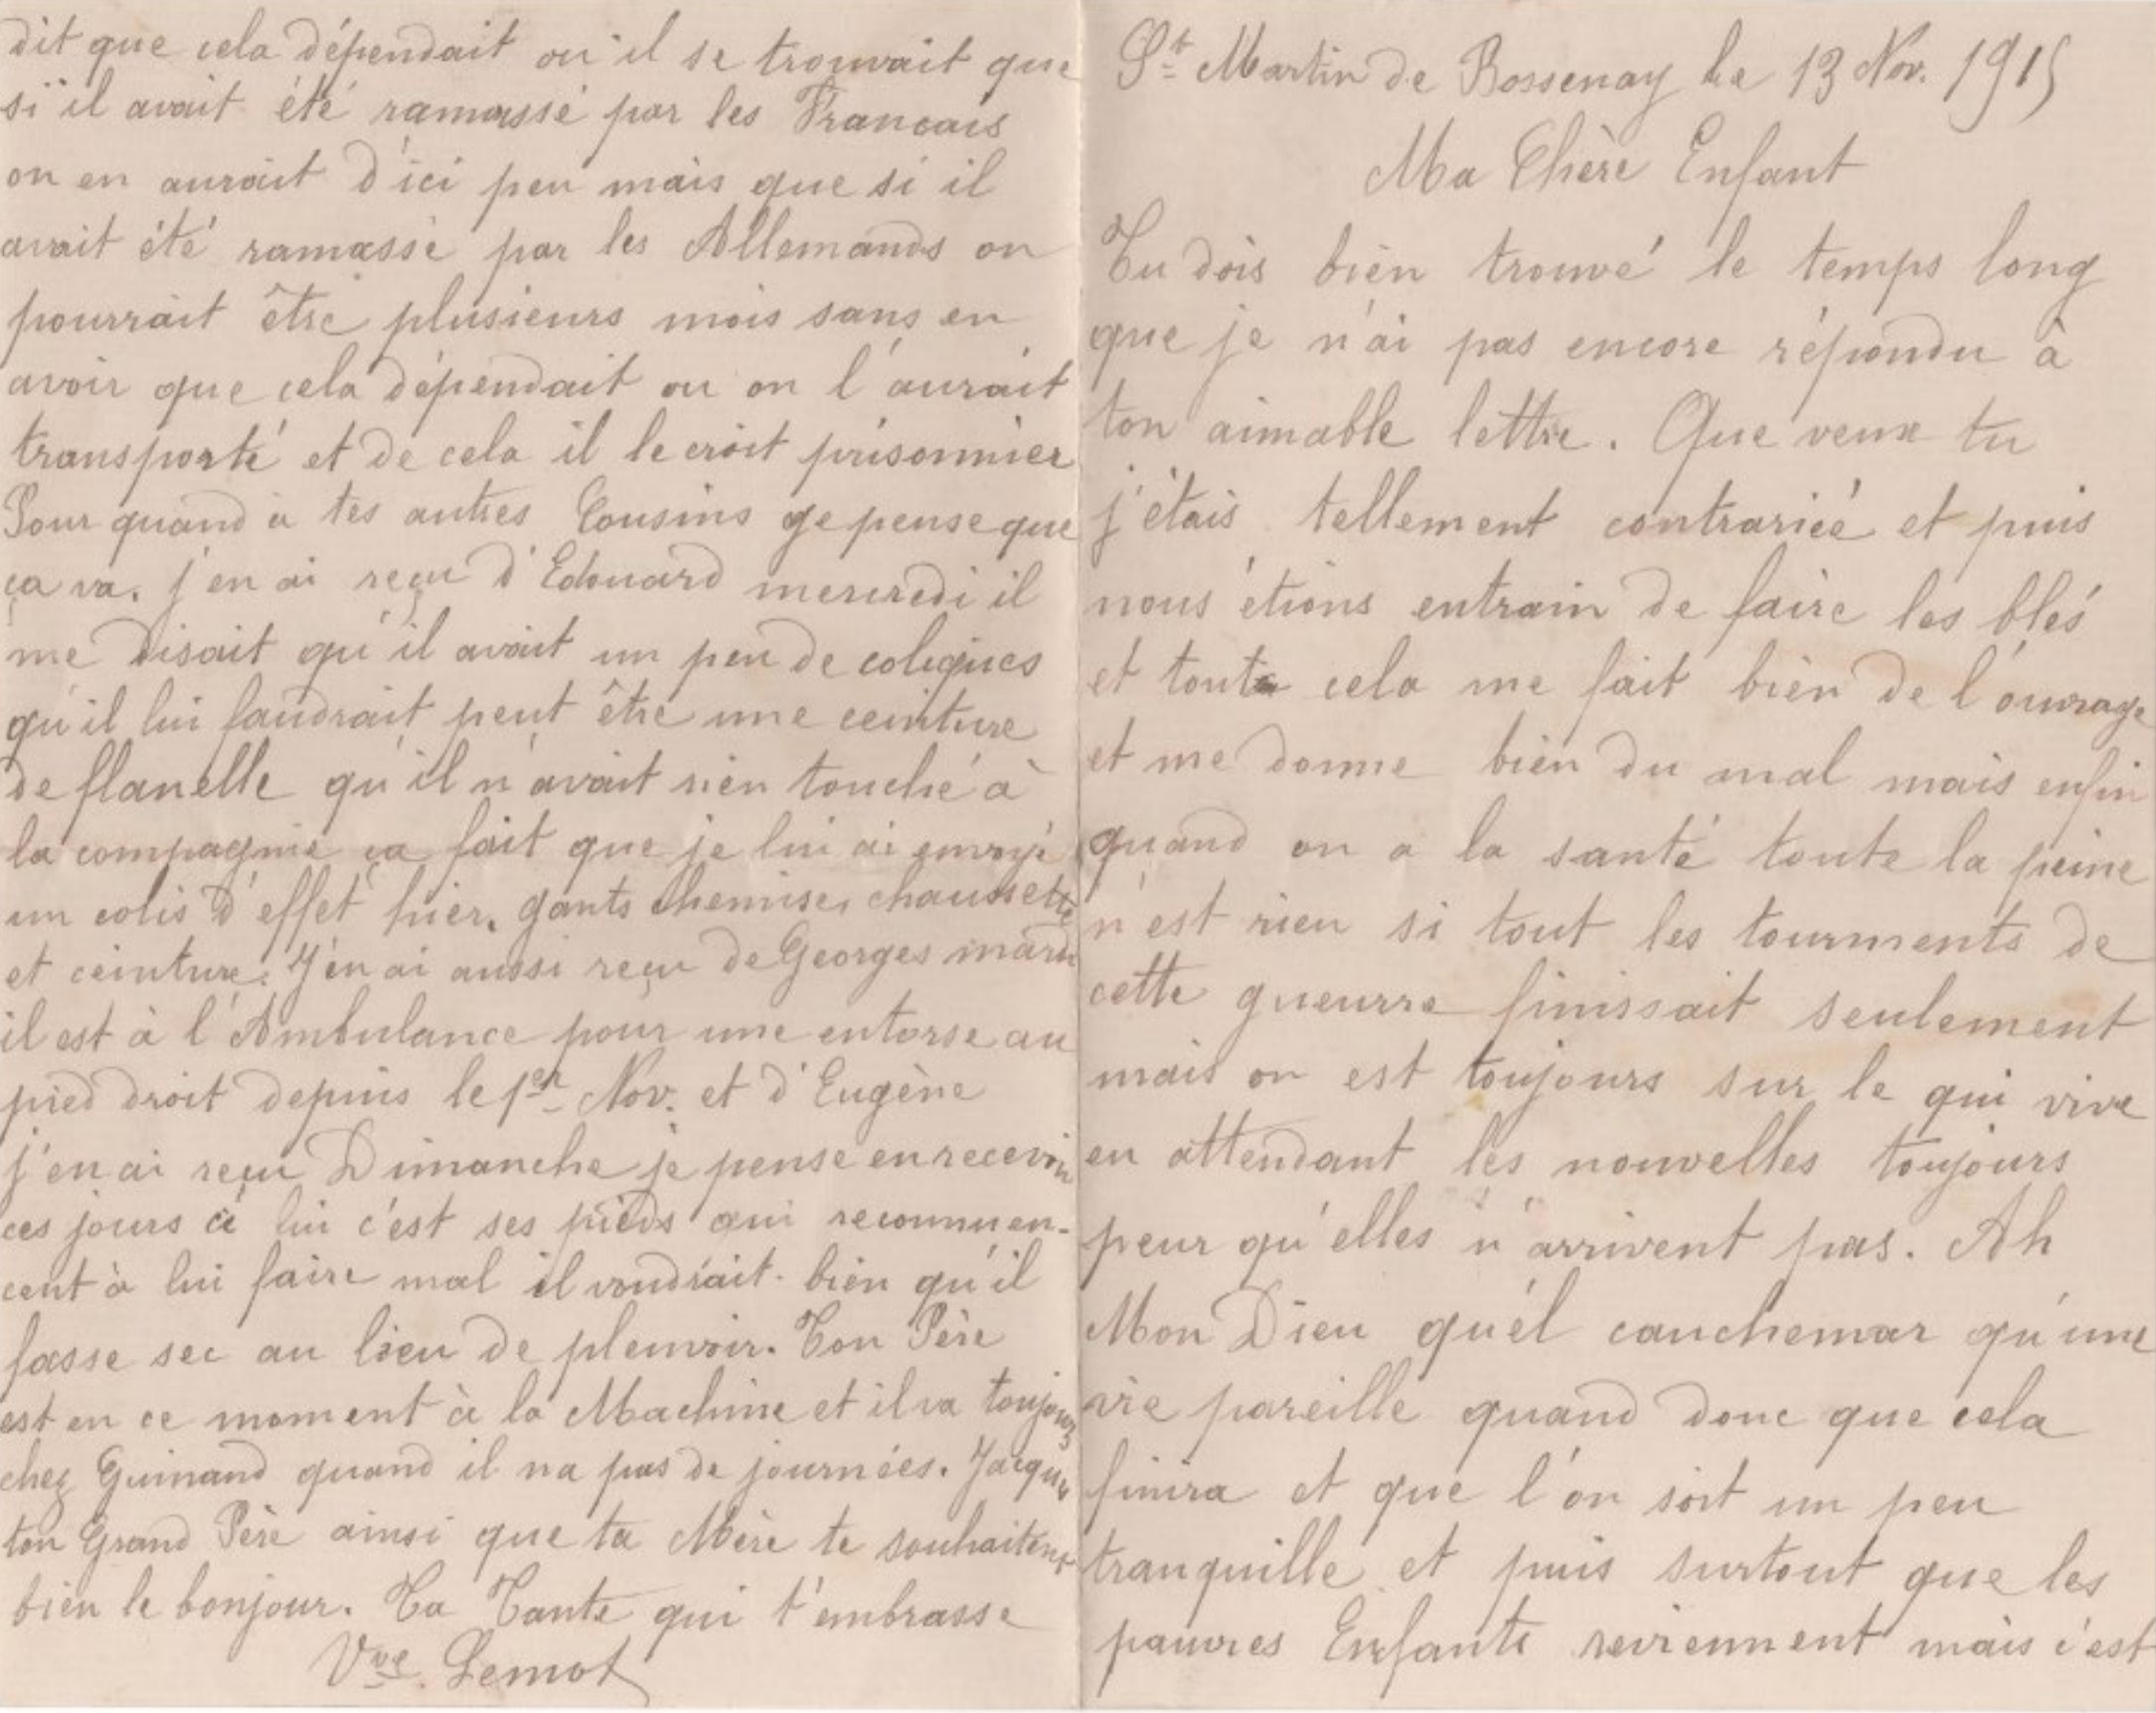 St Martin de Bossenay le 13 Nov. 1915
Ma Chère Enfant
Tu dois bien trouvé le temps long
que je n'ai pas encore répondu à
ton aimable lettre. Que veux tu
j'étais tellement contrariée et puis
nous étions entrain de faire les blés
et toute cela me fait bien de l'ouvrage
et me donne bien du mal mais enfin
quand on a la santé toute la peine
n'est rien si tout les tourments de
cette gueurre finissait seulement
mais on est toujours sur le qui vive
en attendant les nouvelles toujours
peur qu'elles n'arrivent pas. Ah
Mon Dieu qu'el cauchemar qu'une
vie pareille quand donc que cela
finira et que l'on soit un peu
tranquille et puis surtout que les
pauvres Enfants reviennent mais c'est
dit que cela dépendait ou il se trouvait que
si il avait été ramassé par les Francais
on en aurait d'ici peu mais que si il
avait été ramassé par les Allemands on
pourrait être plusieurs mois sans en
avoir que cela dépendait ou on l'aurait
transporté et de cela il le croit prisonnier
Pour quand à tes autres Cousins je pense que
ça va. j'en ai reçu d'Edouard mercredi il
me disait qu'il avait un peu de coliques
qu'il lui faudrait peut être une ceinture
de flanelle qu'il n'avait rien touché à
la compagnie ça fait que je lui ai envoyé
un colis d'effet hier. gants chemises chaussette
et ceinture. J'en ai aussi reçu de Georges mardi
il est à l'Ambulance pour une entorse au
pied droit depuis le 1er Nov. et d'Eugène
j'en ai reçu Dimanche je pense en recevoir
ces jours ci lui c'est ses pieds qui recommen-
cent à lui faire mal il voudrait bien qu'il
fasse sec au lieu de pleuvoir. Ton Père
est en ce moment à la Machine et il va toujours
chez Guinand quand il na pas de journées. Jacques
ton Grand Père ainsi que ta Mère te souhaitent
bien le bonjour. Ta Tante qui t'embrasse
Vve Lemot